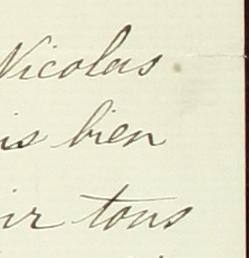 Nicolas
is bien
ir tous